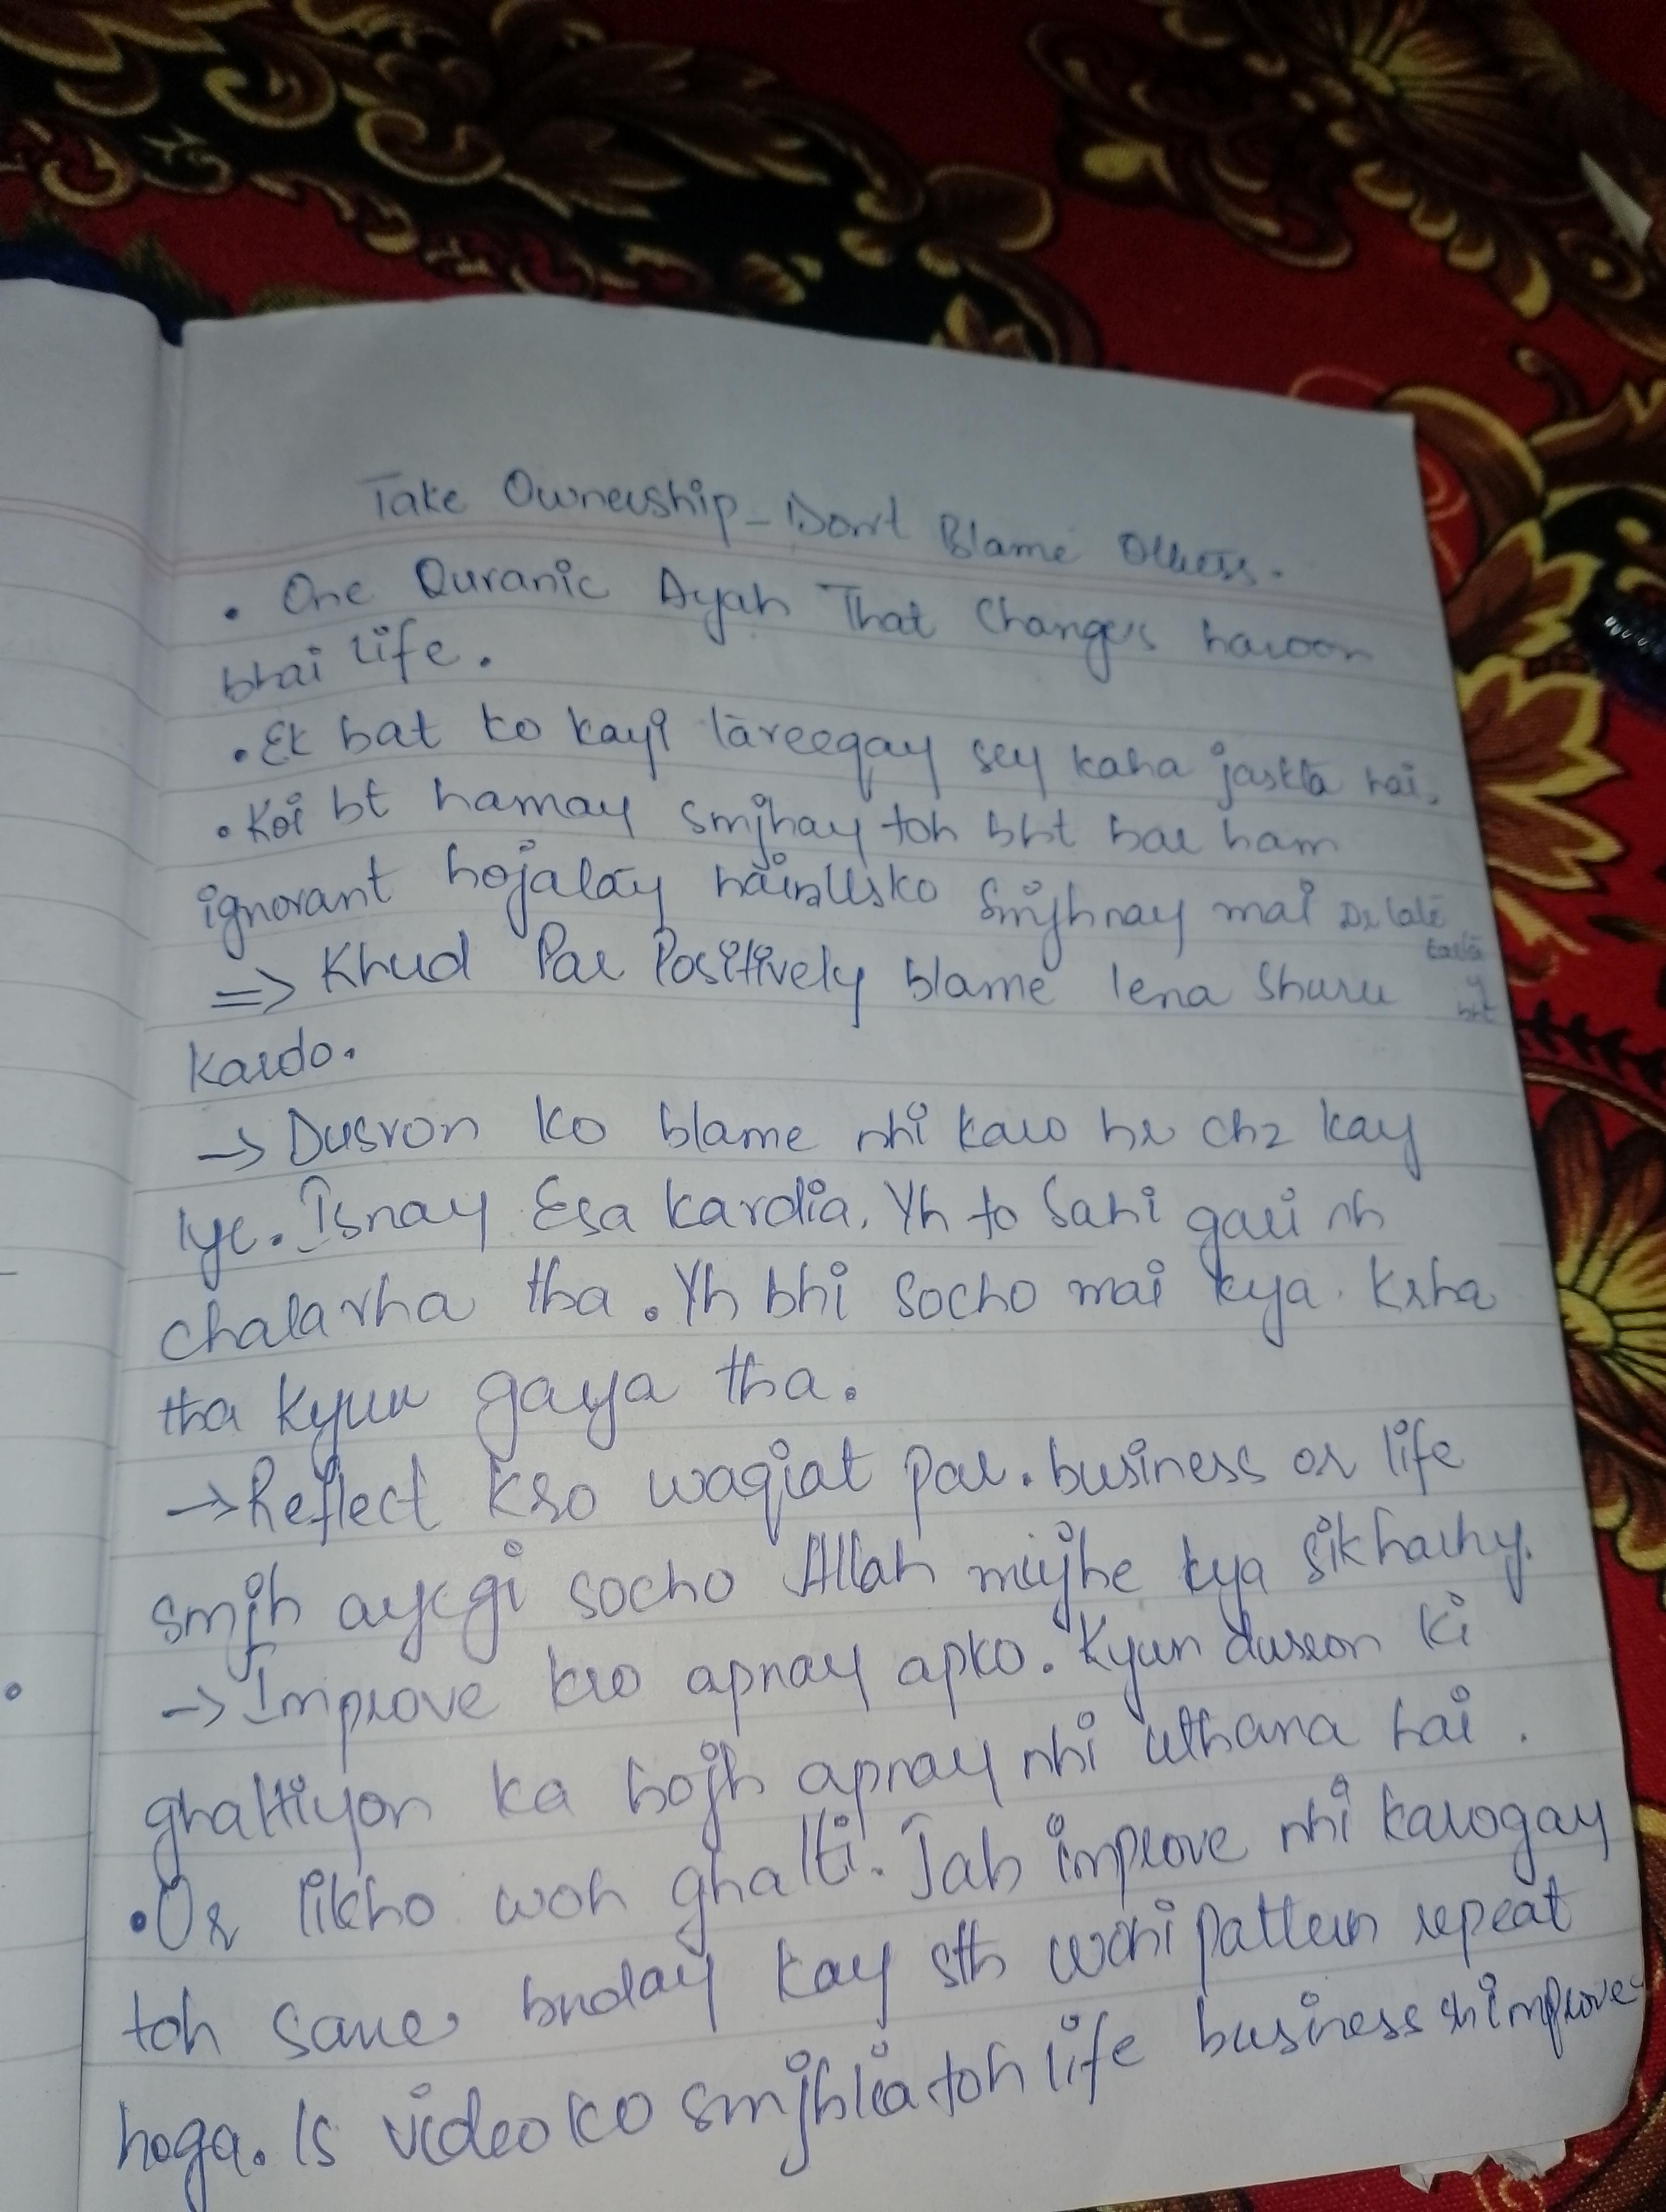 Take Ownership - Don't Blame Others.
• One Quranic Ayah That Changes haroon
bhai life.
• Ek bat ko kayi tareeqay sey kaha jaskta hai.
• Koi bt hamay smjhay toh bht bar ham
ignorant hojatay hain Usko Smjhnay mai
=> Khud Par Positively blame lena Shuru
kardo.
→ Dusron ko blame nhi karo hr chz kay
lye. Isnay Esa kardia. Yh to Sahi gari nh
chalarha tha. Yh bhi socho mai kya krha
tha kyun gaya tha.
→ Reflect kro waqiat par. business or life
smjh ayegi socho Allah mujhe kya sikharhy.
→ Improve kro apnay apko. Kyun dusron ki
ghaltiyon ka bojh apnay nhi uthana hai.
• Or likho woh ghalti. Jab improve nhi karogay
toh sare bnday kay sth wohi pattern repeat
hoga. Is video ko smjhlia toh life business improve